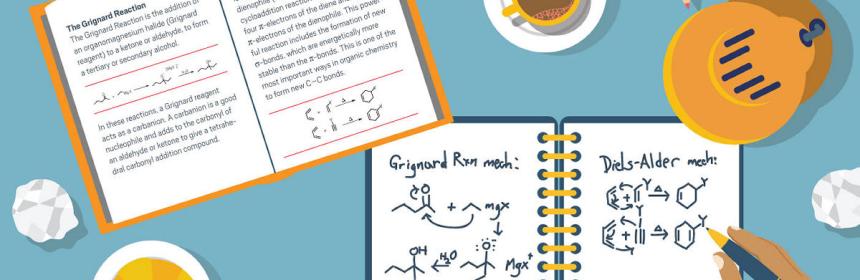 The Grignard Reaction
The Grignard Reaction is the addition of
an organomagnesium halide (Grignard
reagent) to a ketone or aldehyde, to form
a tertiary or secondary alcohol.
In these reactions, a Grignard reagent
acts as a carbanion. A carbanion is a good
nucleophile and adds to the carbonyl of
an aldehyde or ketone to give a tetrahe-
dral carbonyl addition compound.
cycloaddition reaction
four π-electrons of the diene and
π-electrons of the dienophile. This power-
ful reaction includes the formation of new
σ-bonds, which are energetically more
stable than the π-bonds. This is one of the
most important ways in organic chemistry
to form new C–C bonds.
Grignard Rxn mech:
O
+ mgx
OH H₂O :Ö:⁻ Mgx⁺
Diels-Alder mech:
+ Y Δ Y
Y
+ Δ Y
Y